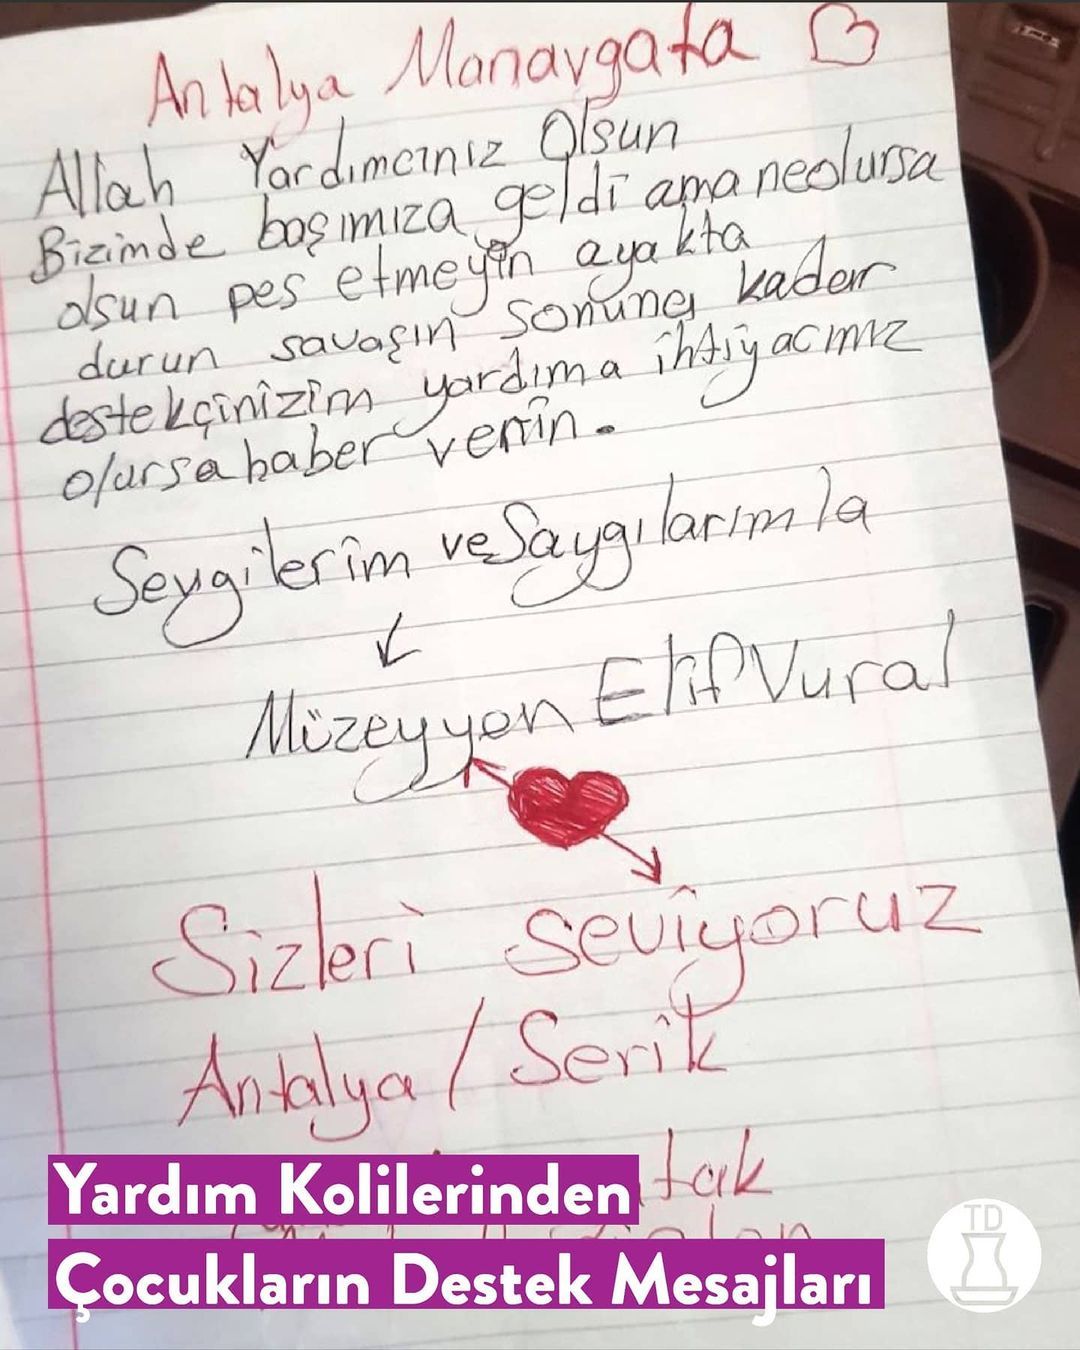 Antalya Manavgata
Allah Yardımcınız Olsun
Bizimde başımıza geldi ama neolursa
olsun pes etmeyin ayakta
durun savaşın sonuna kader
destekçinizim yardıma ihtiyacınız
olursa haber verin.
Sevgilerim ve Saygılarımla
Müzeyyen Elif Vural
Sizleri seviyoruz
Antalya / Serik
Yardım Kolilerinden
Çocukların Destek Mesajları
TD